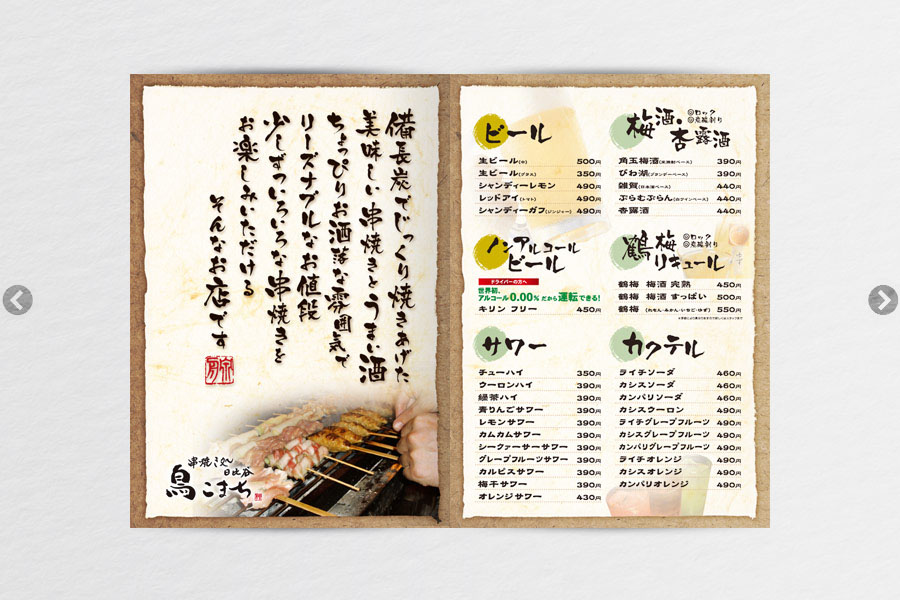 備長炭でじっくり焼きあげた
美味しい串焼きとうまい酒
ちょっぴりお洒落な雰囲気で
リーズナブルなお値段
少しずついろいろな串焼きを
お楽しみいただける
そんなお店です
串焼き処
日比谷
鳥こまち
ビール
生ビール(中) 500円
生ビール(グラス) 350円
シャンディーレモン 490円
レッドアイ(トマト) 490円
シャンディーガフ(ジンジャー) 490円
ノンアルコール
ビール
ドライバーの方へ
世界初、
アルコール0.00%だから運転できる!
キリン フリー 450円
サワー
チューハイ 350円
ウーロンハイ 390円
緑茶ハイ 390円
青りんごサワー 390円
レモンサワー 390円
カムカムサワー 390円
シークァーサーサワー 390円
グレープフルーツサワー 390円
カルピスサワー 390円
梅干サワー 430円
オレンジサワー 430円
梅酒・
杏露酒
◎ロック
◎炭酸割り
角玉梅酒(米焼酎ベース) 390円
びわ湖(ブランデーベース) 390円
雑賀(日本酒ベース) 440円
ぷらむぷらん(白ワインベース) 440円
杏露酒 440円
鶴梅
リキュール
◎ロック
◎炭酸割り
鶴梅 梅酒 完熟 450円
鶴梅 梅酒 すっぱい 500円
鶴梅 (れもん・みかん・いちご・ゆず) 550円
カクテル
ライチソーダ 460円
カシスソーダ 460円
カンパリソーダ 460円
カシスウーロン 490円
ライチグレープフルーツ 490円
カシスグレープフルーツ 490円
カンパリグレープフルーツ 490円
ライチオレンジ 490円
カシスオレンジ 490円
カンパリオレンジ 490円